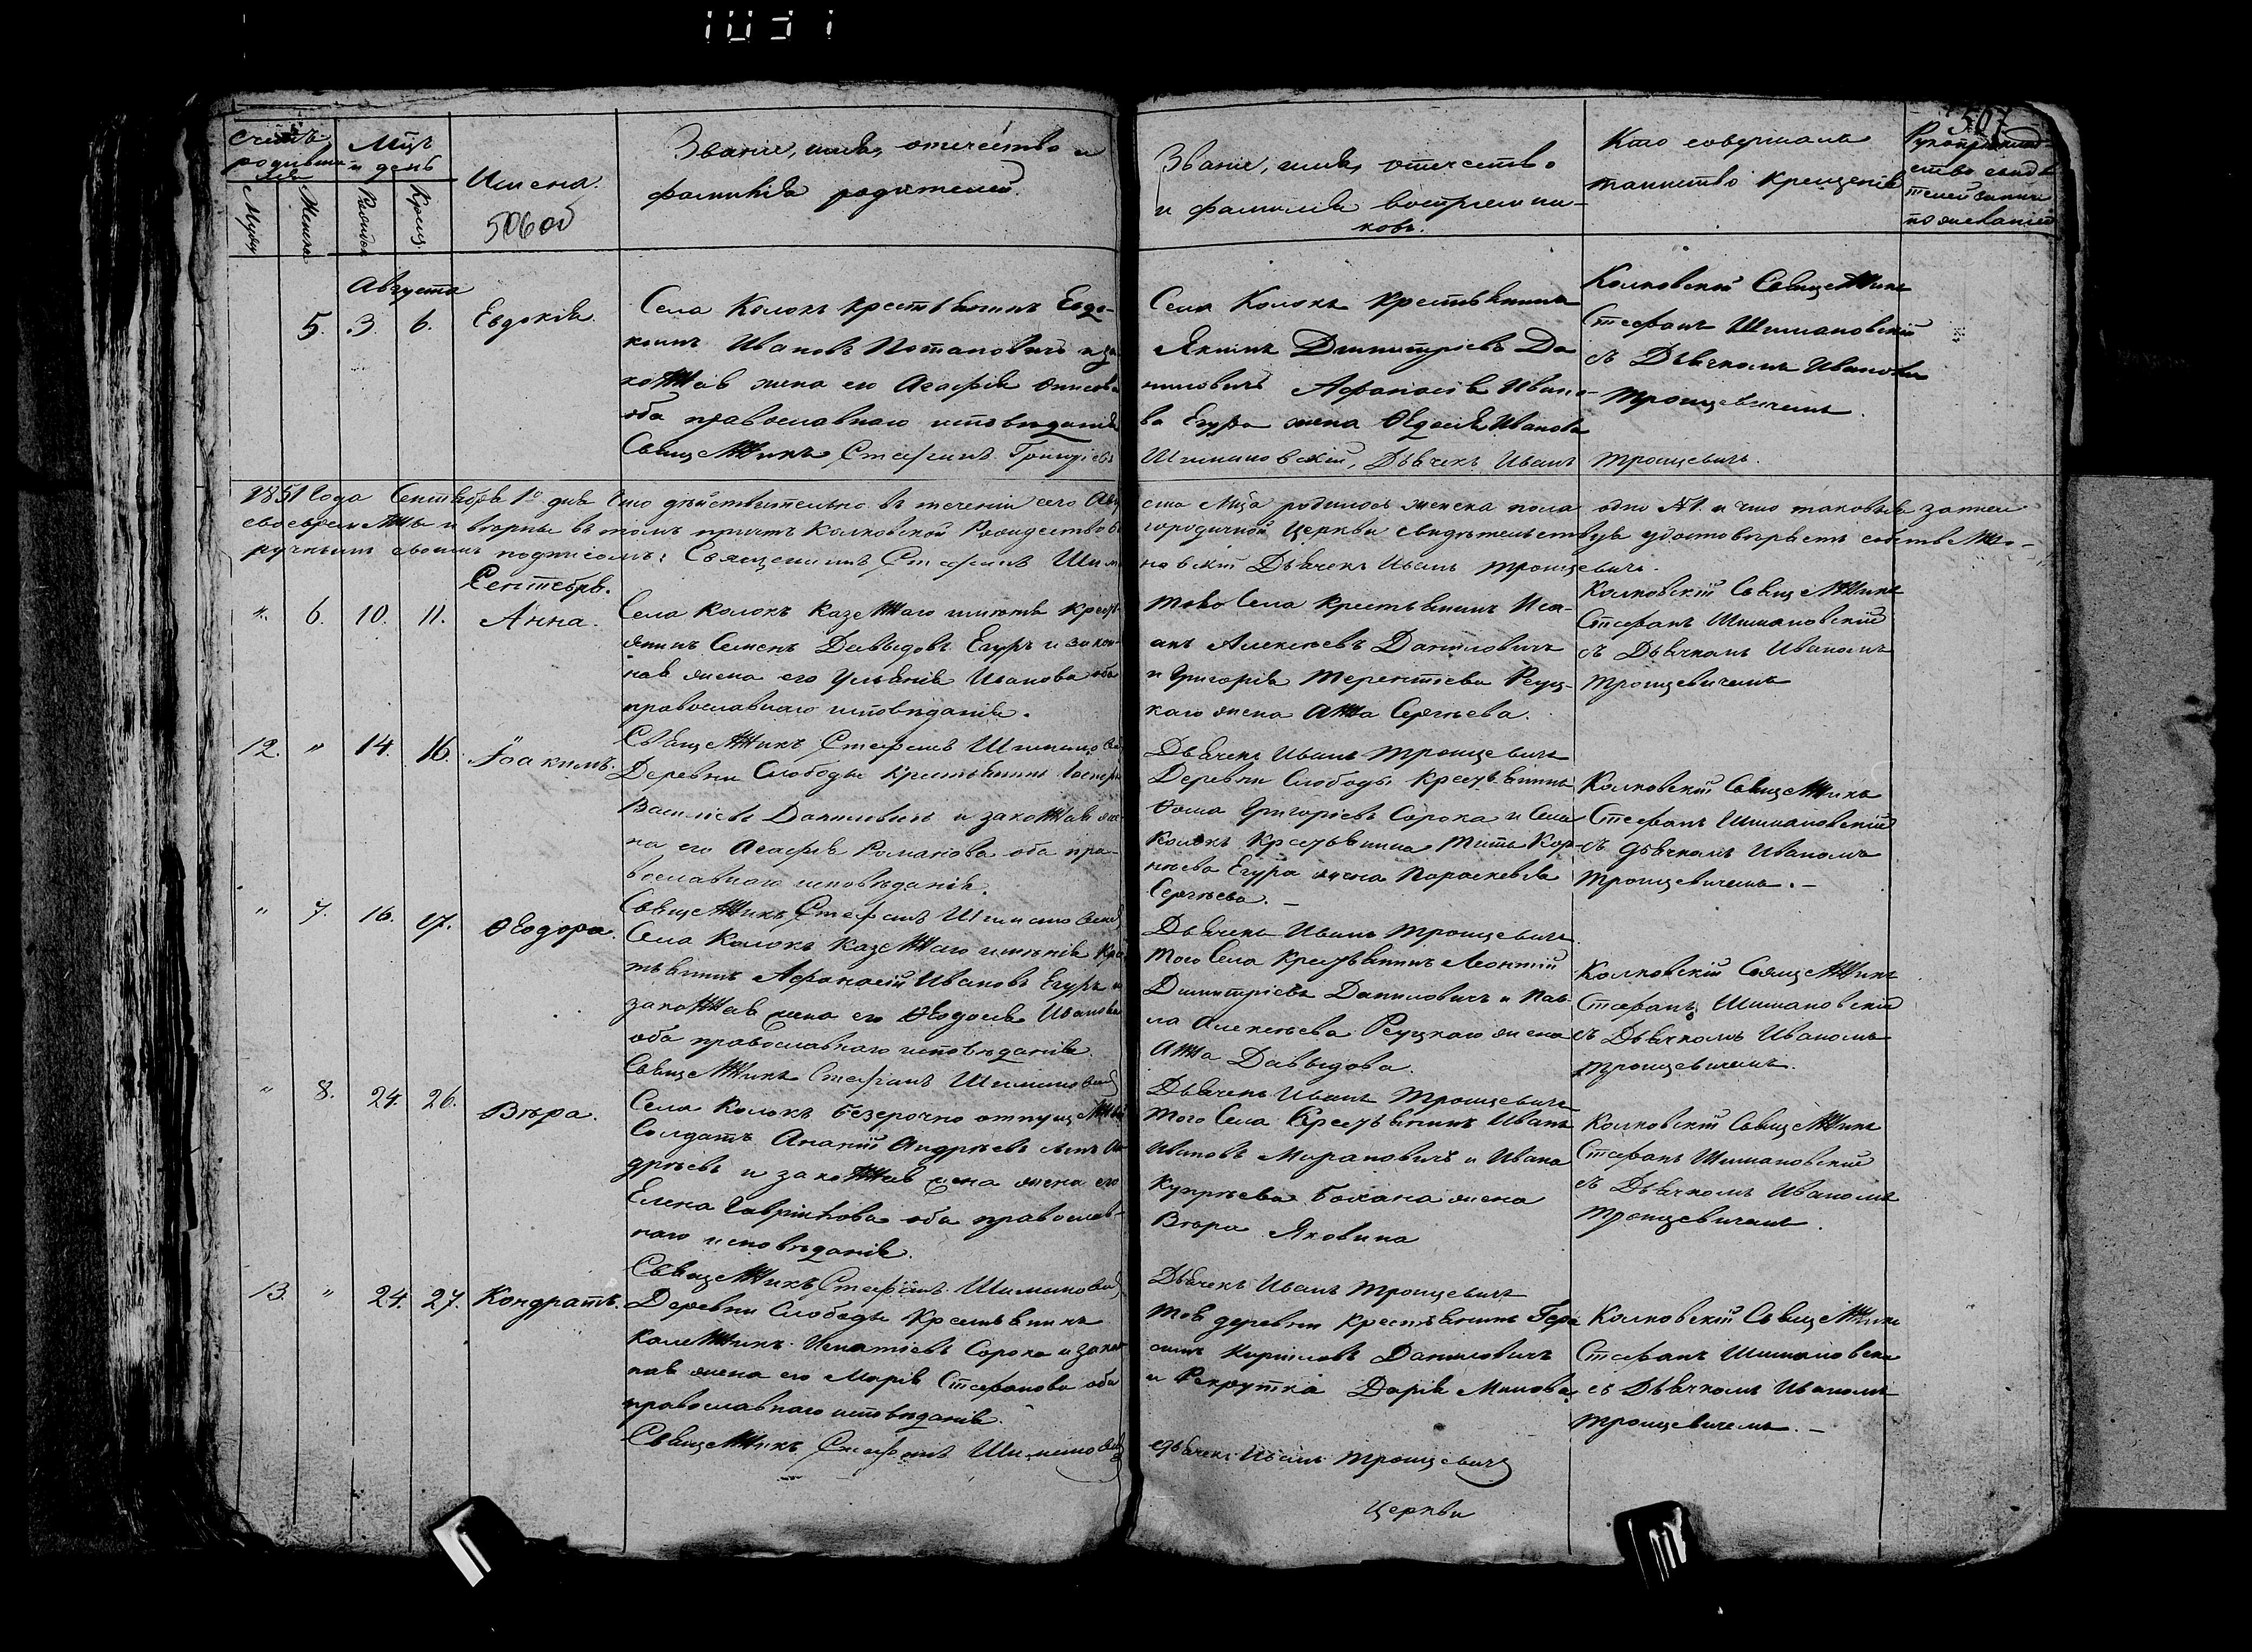 1031
507
Счетъ родивш
Мцъ и день
Имена.
506об
Мужу
Женска
Рожден
Крещ.
Званіе, имя, отечество и
фамилія родителей.
Званіе, имя, отечество
и фамилія воспріемни-
ковъ.
Кто совершалъ
таинство крещенія
Рукоприклад-
ство свидѣ
телей записи
по желанію
Августа
5. 3. 6. Евдокія.
Села Колокъ крестьянинъ Евдо-
кимъ Ивановъ Потаповичъ и за
конная жена его Агафія
оба православнаго исповѣданія
Священникъ Стефанъ Григоріевъ
Села Колокъ крестьянинъ
Якимъ Димитріевъ Да
ниловичъ Афанасія Ивано-
ва Егура жена Ѳедосія Иванова
Шимановскій, Дьячекъ Иванъ Троицевичъ.
Колковскій Священникъ
Стефанъ Шимановскій
съ Дьячкомъ Иваномъ
Троицевичемъ.
1851 года Сентября 1го дня что дѣйствительно въ теченіи сего Авгу
ста Мца родилось женска пола одно №1. и что таковыя записи
своевременны и вѣрны въ томъ причтъ Колковской Рождество Бо
городичной Церкви свидѣтельствуя удостовѣряетъ собственно-
ручнымъ своимъ подписомъ: Священникъ Стефанъ Шима
новскій Дьячекъ Иванъ Троицевичъ.
Сентябрь.
" 6. 10. 11. Анна.
Села Колокъ казеннаго имѣнія крестья-
янинъ Семенъ Давыдовъ Егуръ и закон-
ная жена его Ульянія Иванова оба
православнаго исповѣданія.
Священникъ Стефанъ Шимановскій
Того Села крестьянинъ Иса-
акъ Алексѣевъ Даниловичъ
и Григорія Терентіева Реуц-
каго жена Анна Сергѣева.
Дьячекъ Иванъ Троицевичъ
Колковскій Священникъ
Стефанъ Шимановскій
съ Дьячкомъ Иваномъ
Троицевичемъ
12. " 14. 16. Іоакимъ.
Деревни Слободы крестьянинъ
Василіевъ Даниловичъ и законная же-
на его Агафія Романова оба пра-
вославнаго исповѣданія.
Священникъ Стефанъ Шимановскій
Деревни Слободы крестьянинъ
Ѳома Григоріевъ Сорока и Села
Колокъ крестьянина Тита Кор-
нѣева Егура жена Параскевія
Сергѣева.—
Дьячекъ Иванъ Троицевичъ
Колковскій Священникъ
Стефанъ Шимановскій
съ Дьячкомъ Иваномъ
Троицевичемъ.—
" 7. 16. 17. Ѳеодора.
Села Колокъ казеннаго имѣнія крес
тьянинъ Афанасій Ивановъ Егуръ и
законная жена его Ѳеодосія Иванова
оба православнаго исповѣданія.
Священникъ Стефанъ Шимановскій
Того Села крестьянинъ Леонтій
Димитріевъ Даниловичъ и Пав-
ла Алексѣева Реуцкаго жена
Анна Давыдова.
Дьячекъ Иванъ Троицевичъ
Колковскій Священникъ
Стефанъ Шимановскій
съ Дьячкомъ Иваномъ
Троицевичемъ.
" 8. 24. 26. Вѣра.
Села Колокъ безсрочно отпущенный
Солдатъ Ананій Андрѣевъ
дрѣевъ и законная жена жена его
Елена Гавріилова оба православ-
наго исповѣданія.
Священникъ Стефанъ Шимановскій
Того Села Крестьянинъ Иванъ
Ивановъ Мирановичъ и Ивана
Купрѣева Бохана жена
Вѣра Яковина
Дьячекъ Иванъ Троицевичъ
Колковскій Священникъ
Стефанъ Шимановскій
съ Дьячкомъ Иваномъ
Троицевичемъ.
13. " 24. 27. Кондратъ.
Деревни Слободы Крестьянинъ
Каленникъ Игнатіевъ Сорока и закон
ная жена его Марія Стефанова оба
православнаго исповѣданія.
Священникъ Стефанъ Шимановскій
Тоя деревни крестьянинъ Гера
симъ Кириловъ Даниловичъ
и Рекрутка Дарія Минова.
Дьячекъ Иванъ Троицевичъ
Колковскій Священникъ
Стефанъ Шимановскій
съ Дьячкомъ Иваномъ
Троицевичемъ.—
Церкви